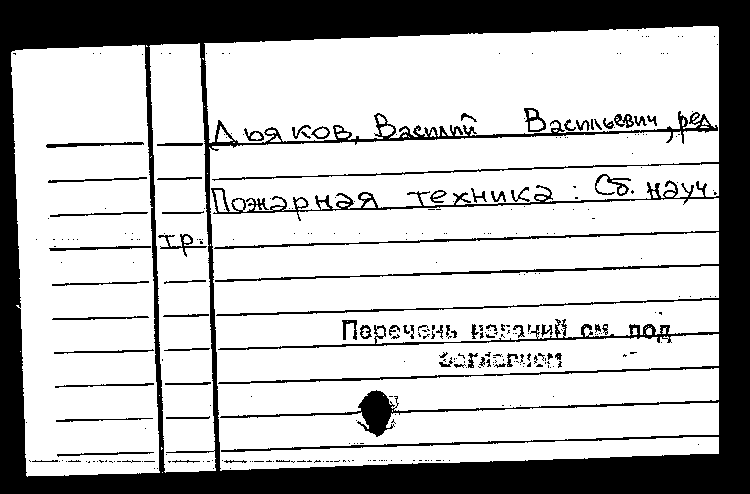 Дьяков, Василий Васильевич, ред.
Пожарная техника : Сб. науч.
тр.
Перечень изданий см. под
заглавием